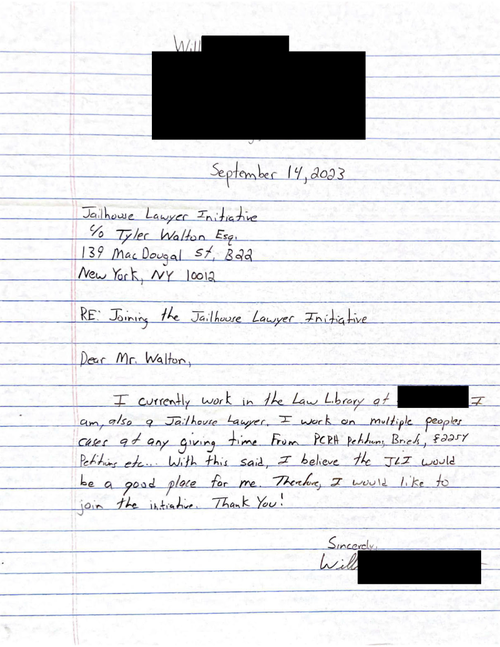 Will
September 14, 2023
Jailhouse Lawyer Initiative
c/o Tyler Walton Esq.
139 MacDougal St, B22
New York, NY 10012
RE: Joining the Jailhouse Lawyer Initiative
Dear Mr. Walton,
I currently work in the Law Library at I
am, also a Jailhouse Lawyer. I work on multiple peoples
cases at any giving time From PCRA Petitions, Briefs, §2254
Petitions etc... With this said, I believe the JLI would
be a good place for me. Therefore, I would like to
join the intiative. Thank You!
Sincerely,
Will